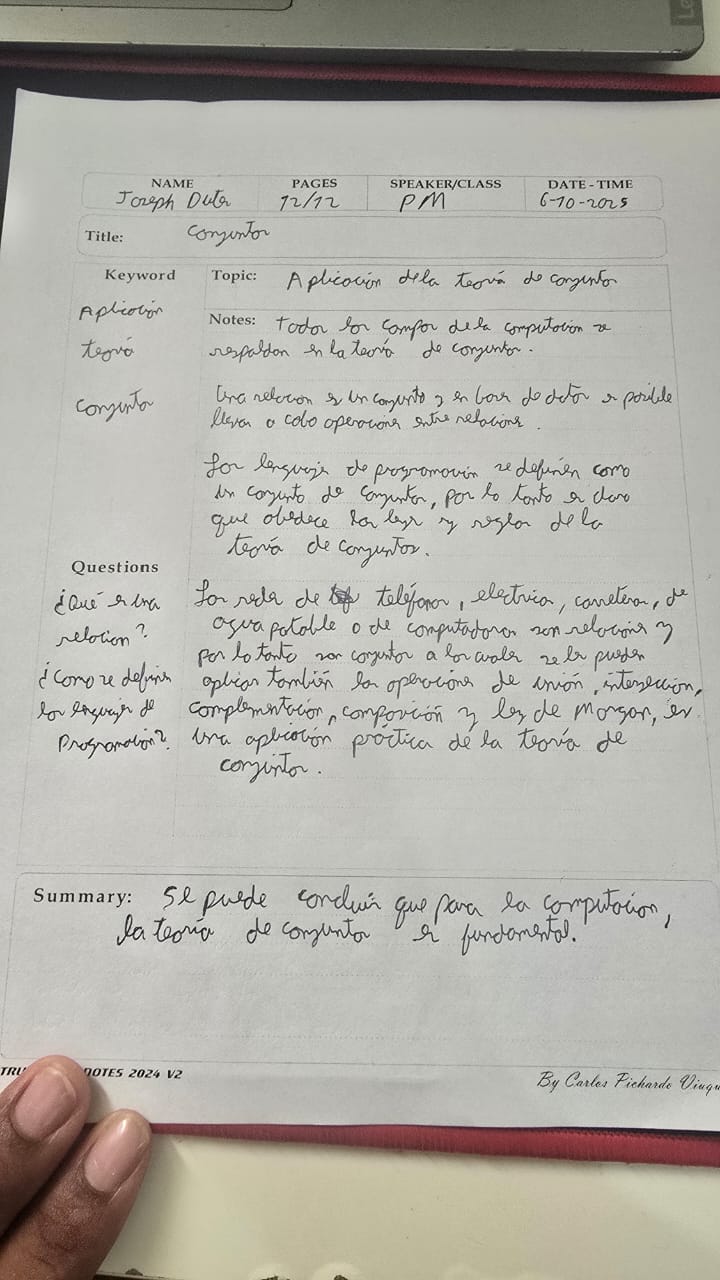 NAME PAGES SPEAKER/CLASS DATE - TIME
Joseph 12/12 PM 6-10-2025
Title: Conjuntos
Keyword
Aplicación
teoría
Conjuntos
Topic: Aplicación de la teoría de conjuntos
Notes: Todos los campos de la computación se
respaldan en la teoría de conjuntos.
Una relacion es un conjunto y en bases de datos es posible
llevar a cabo operaciones entre relaciones.
Los lenguajes de programación se definen como
un conjunto de conjuntos, por lo tanto es claro
que obedece las leyes y reglas de la
teoría de conjuntos.
Los redes de teléfonos, electrica, carreteras, de
agua potable o de computadoras son relaciones y
por lo tanto son conjuntos a los cuales se les pueden
aplicar también las operaciones de unión, intersección,
complementación, composición y ley de Morgan, es
una aplicación práctica de la teoría de
conjuntos.
Questions
¿Qué es una
relacion?
¿Como se definen
los lenguajes de
Programación?
Summary: Se puede concluir que para la computacion,
la teoría de conjuntos es fundamental.
NOTES 2024 V2
By Carlos Pichardo